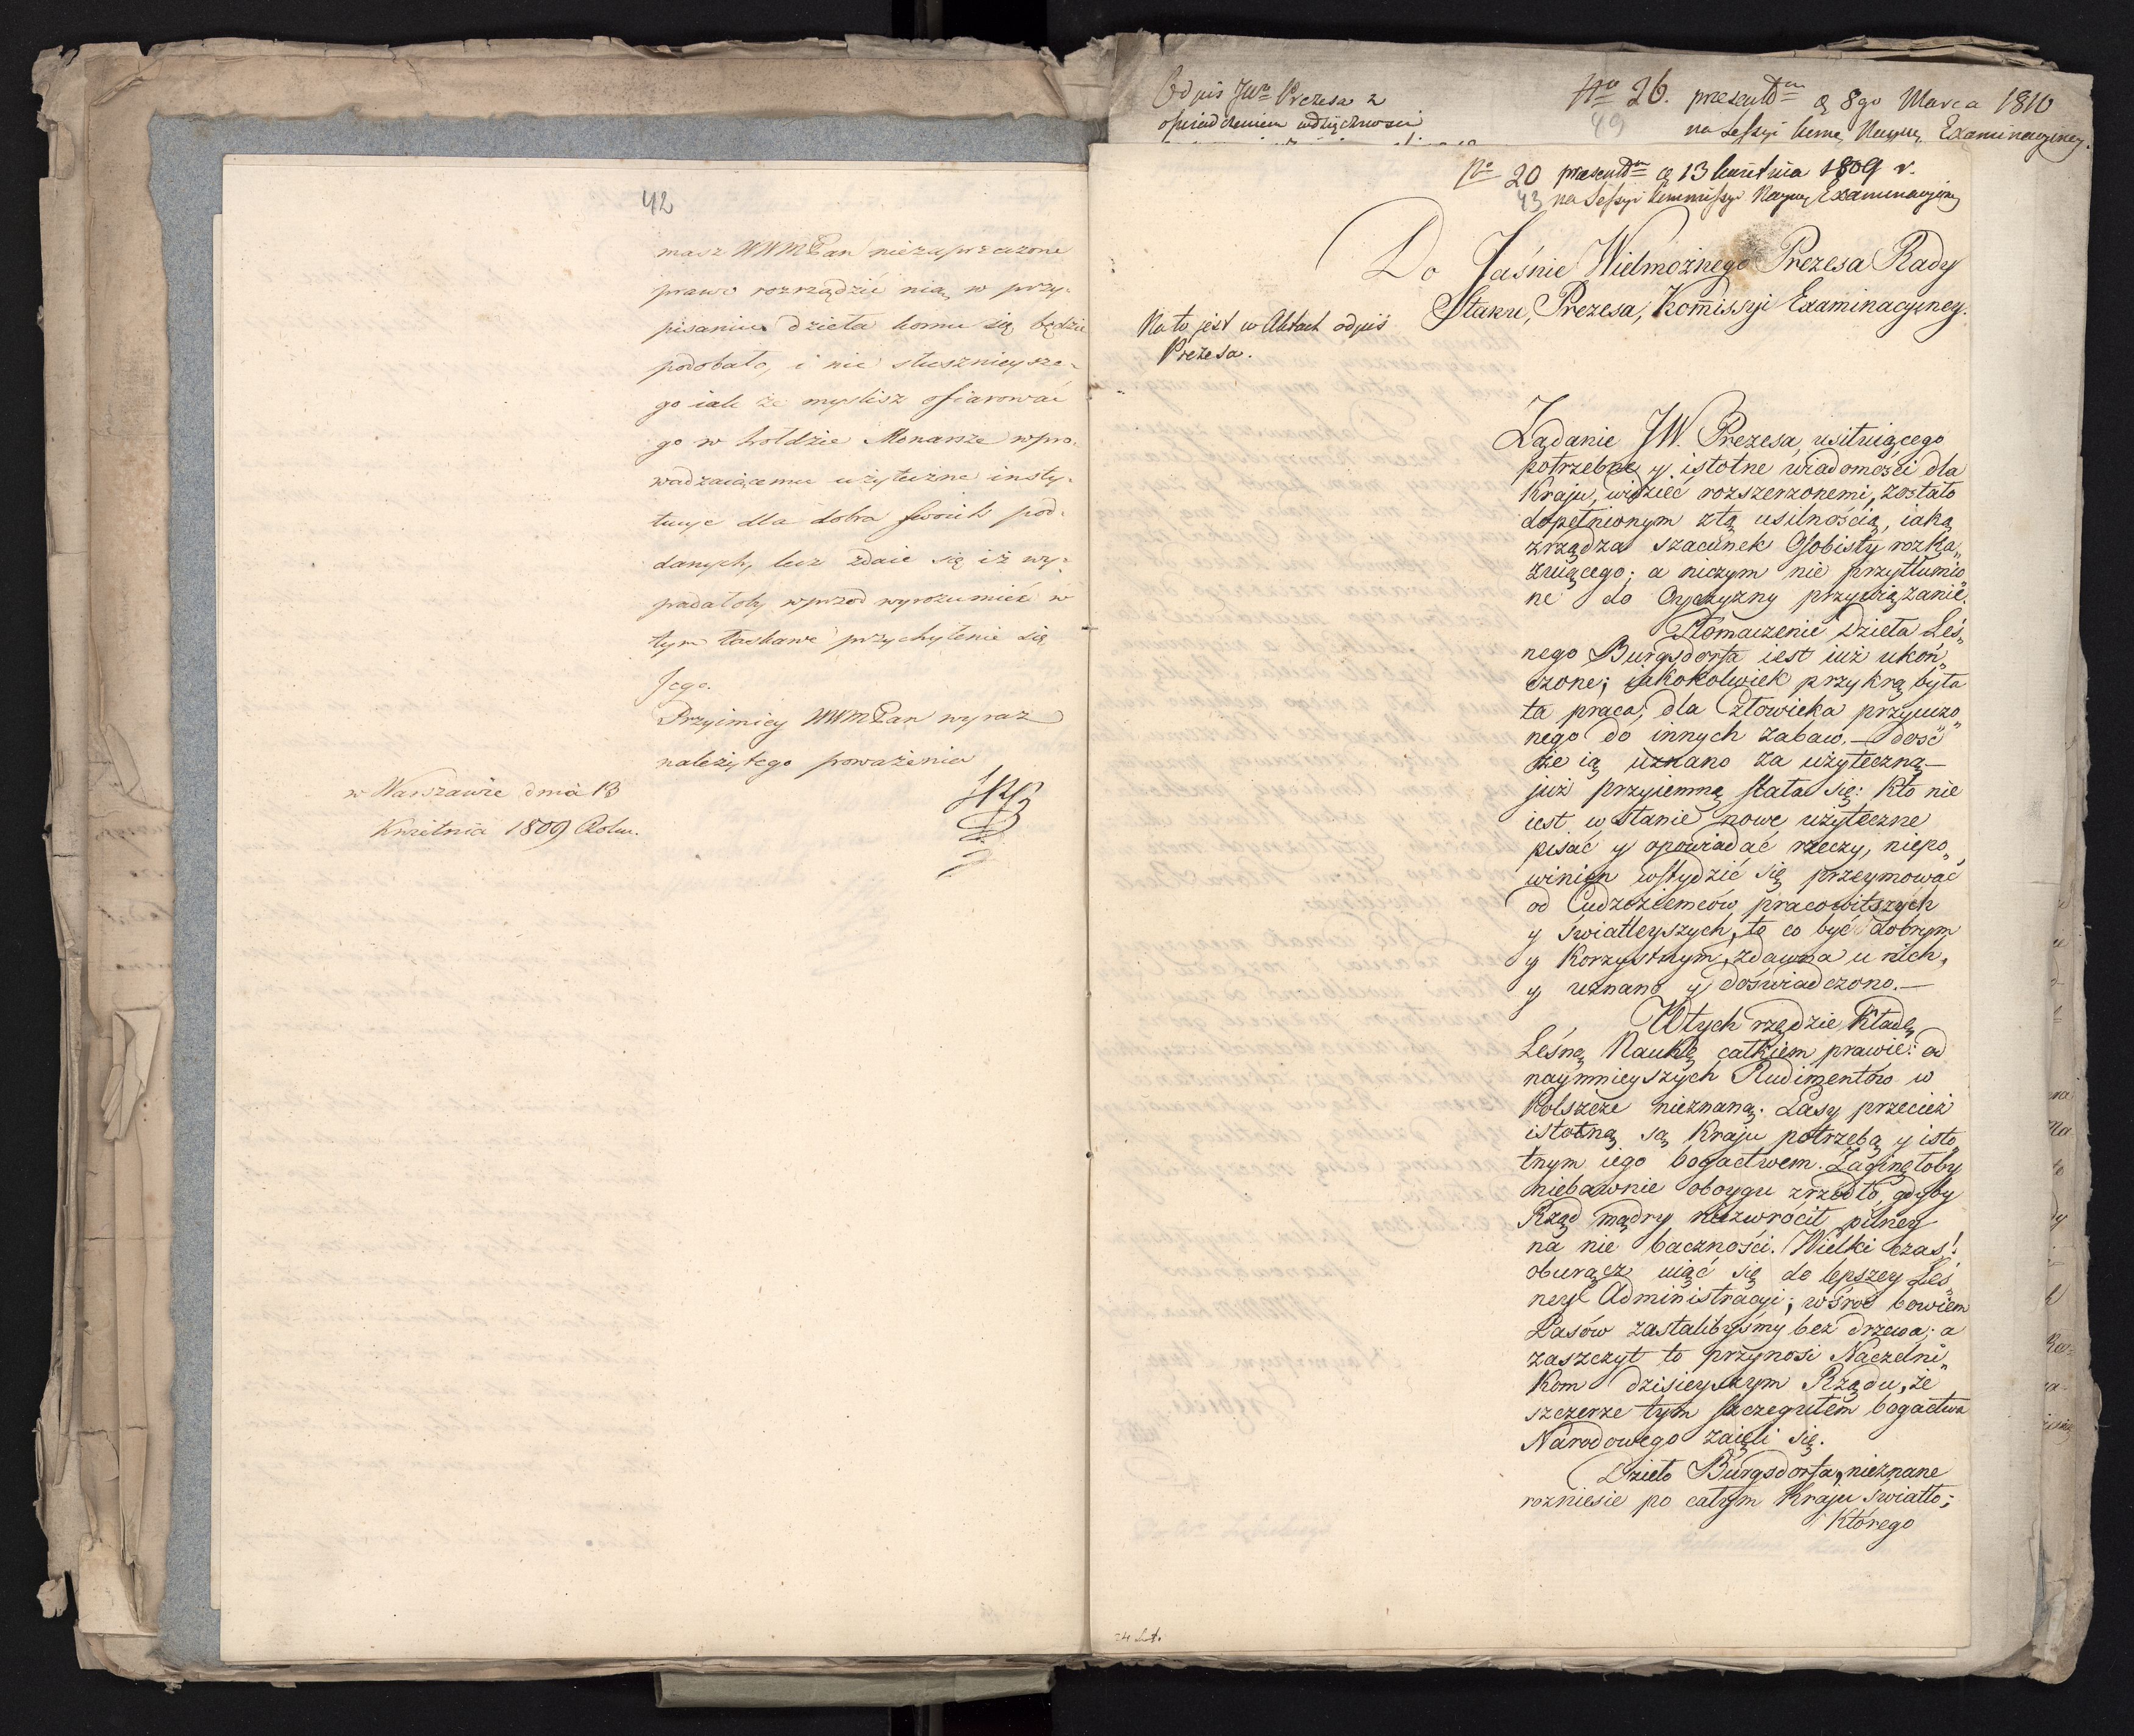 42
masz WWMPan niezaprzeczone
prawo rozrządzić nią w przy-
pisaniu dzieła komu się będzie
podobało, i nic słuszniejsze-
go iak że myslisz ofiarować
go w hołdzie Monarsze wpro-
wadzaiącemu użyteczne insty-
tucye dla dobra swoich pod-
danych, lecz zdaie się iż wy-
padałoby wprzod wyrozumieć w
tym łaskawe przychylenie się
Jego.
Przyimiey WWMPan wyraz
należytego poważenia
w Warszawie dnia 13
Kwietnia 1809 Roku.
Odpis JWo Prezesa z
oświadczeniem wdzięczności
No 26. presentm d 8go Marca 1810
49
na Sessyi Examinacyiney.
No 20 praesentm d 13 kwietnia 1809 r.
43 na Sessyi Kommissyi Nayw. Examinacyiney
Do Jaśnie Wielmożnego Prezesa Rady
Stanu, Prezesa, Komissyi Examinacyiney.
Na to jest w Aktach odpis
Prezesa.
Żądanie JW. Prezesa, usiłuiącego
potrzebne y istotne wiadomości dla
Kraju, widzieć rozszerzonemi, zostało
dopełnionym z tą usilnością, iaką
zrządza szacunek Osobisty rozka„
zuiącego; a niczym nie przytłumio„
ne do Oyczyzny przywiązanie.
Tłomaczenie Dzieła Leś„
nego Burgsdorfa iest iuż ukoń„
czone; jakokolwiek przykrą była
ta praca, dla Człowieka przywzo„
nego do innych zabaw,— dość
że ią uznano za użyteczną—
już przyiemną stała się: Kto nie
iest w stanie nowe użyteczne
pisać y opowiadać rzeczy, niepo„
winien wstydzić się przeymować
od Cudzoziemców pracowitszych
y światleyszych, to co być dobrym
y korzystnym, zdawna u nich,
y uznano y doświadczono.—
W tych rzędzie kładę
Leśną Naukę całkiem prawie: od
naymnieyszych Rudimentów w
Polszcze nieznaną. Lasy przecież
istotną są Kraju potrzebą y isto„
tnym iego bogactwem. Zaginęłoby
niebawnie oboygu zrzodło, gdyby
Rząd mądry niezwrócił pilney
na nie baczności. Wielki czas!
oburącz wiąć się do lepszey Leś„
ney Administracyi; wśrod bowiem
Lasów zastalibyśmy bez drzewa; a
zaszczyt to przynosi Naczelni„
kom dzisieyszym Rządu, że
szczerze tym szczegułem bogactwa
Narodowego zaięli się.
Dzieło Burgsdorfa, nieznane
rozniesie po całym Kraju światło;
Którego